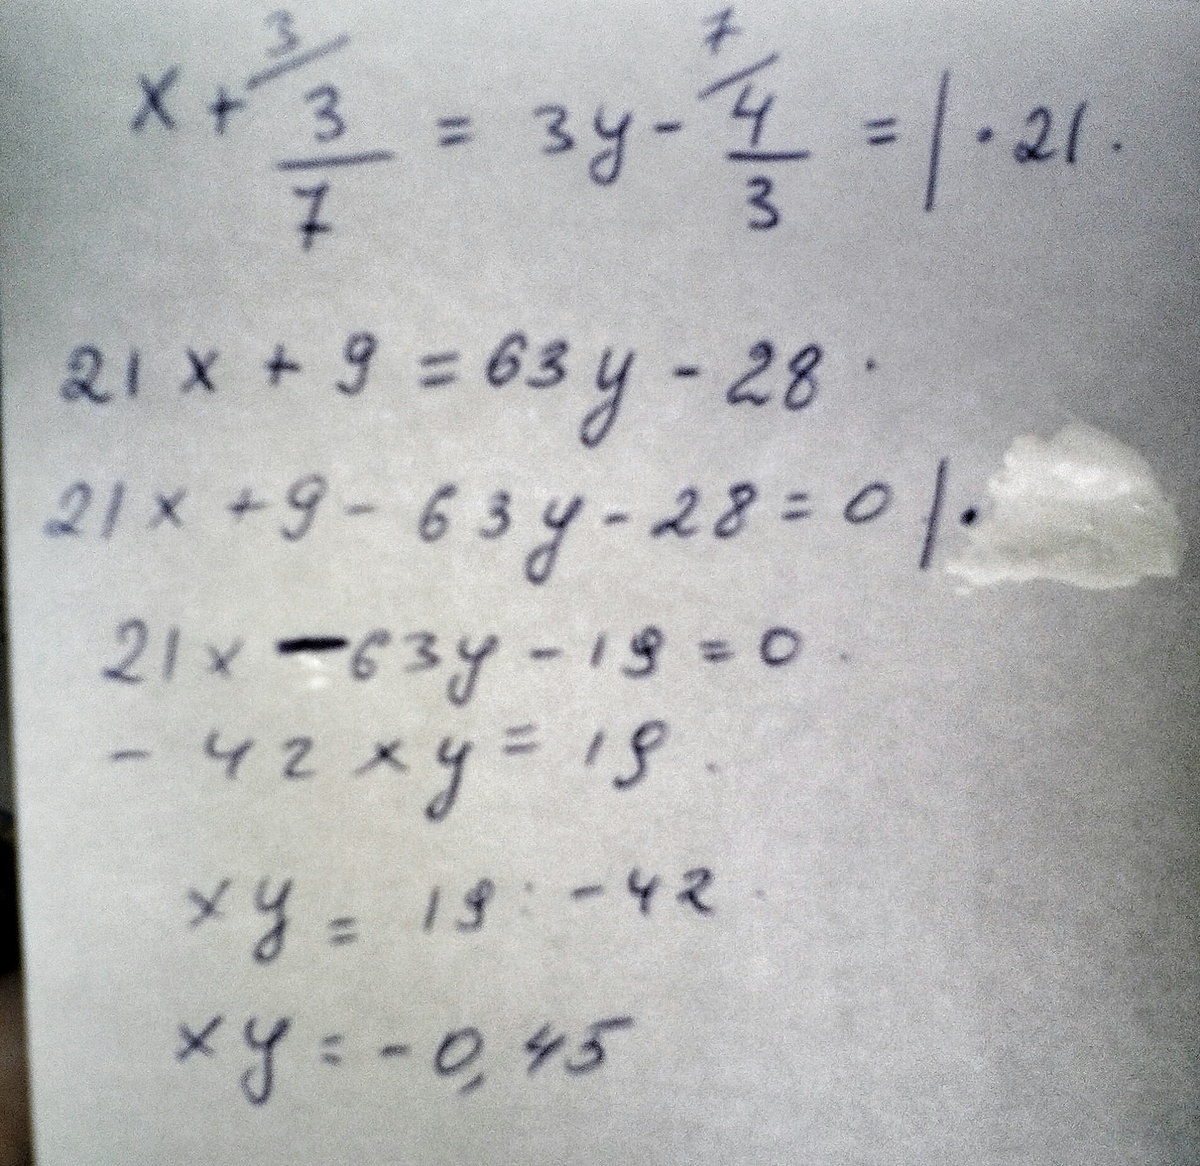 x + 3/ 3/7 = 3y - 7/ 4/3 = | · 21.
21x + 9 = 63y - 28 ·
21x + 9 - 63y - 28 = 0 | ·
21x - 63y - 19 = 0.
- 42xy = 19.
xy = 19 : -42.
xy = -0,45